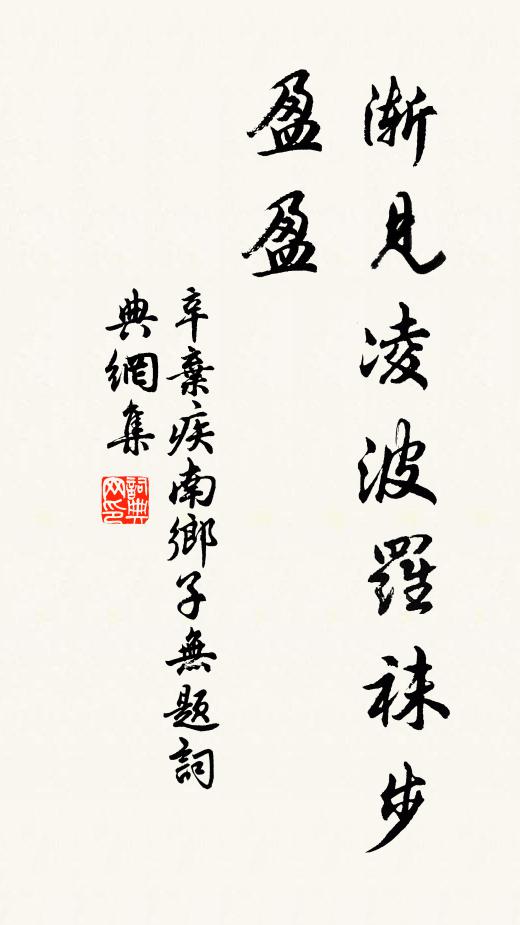 漸見凌波羅袜步
盈盈
辛棄疾南鄉子無題詞
典網集
詞典網印